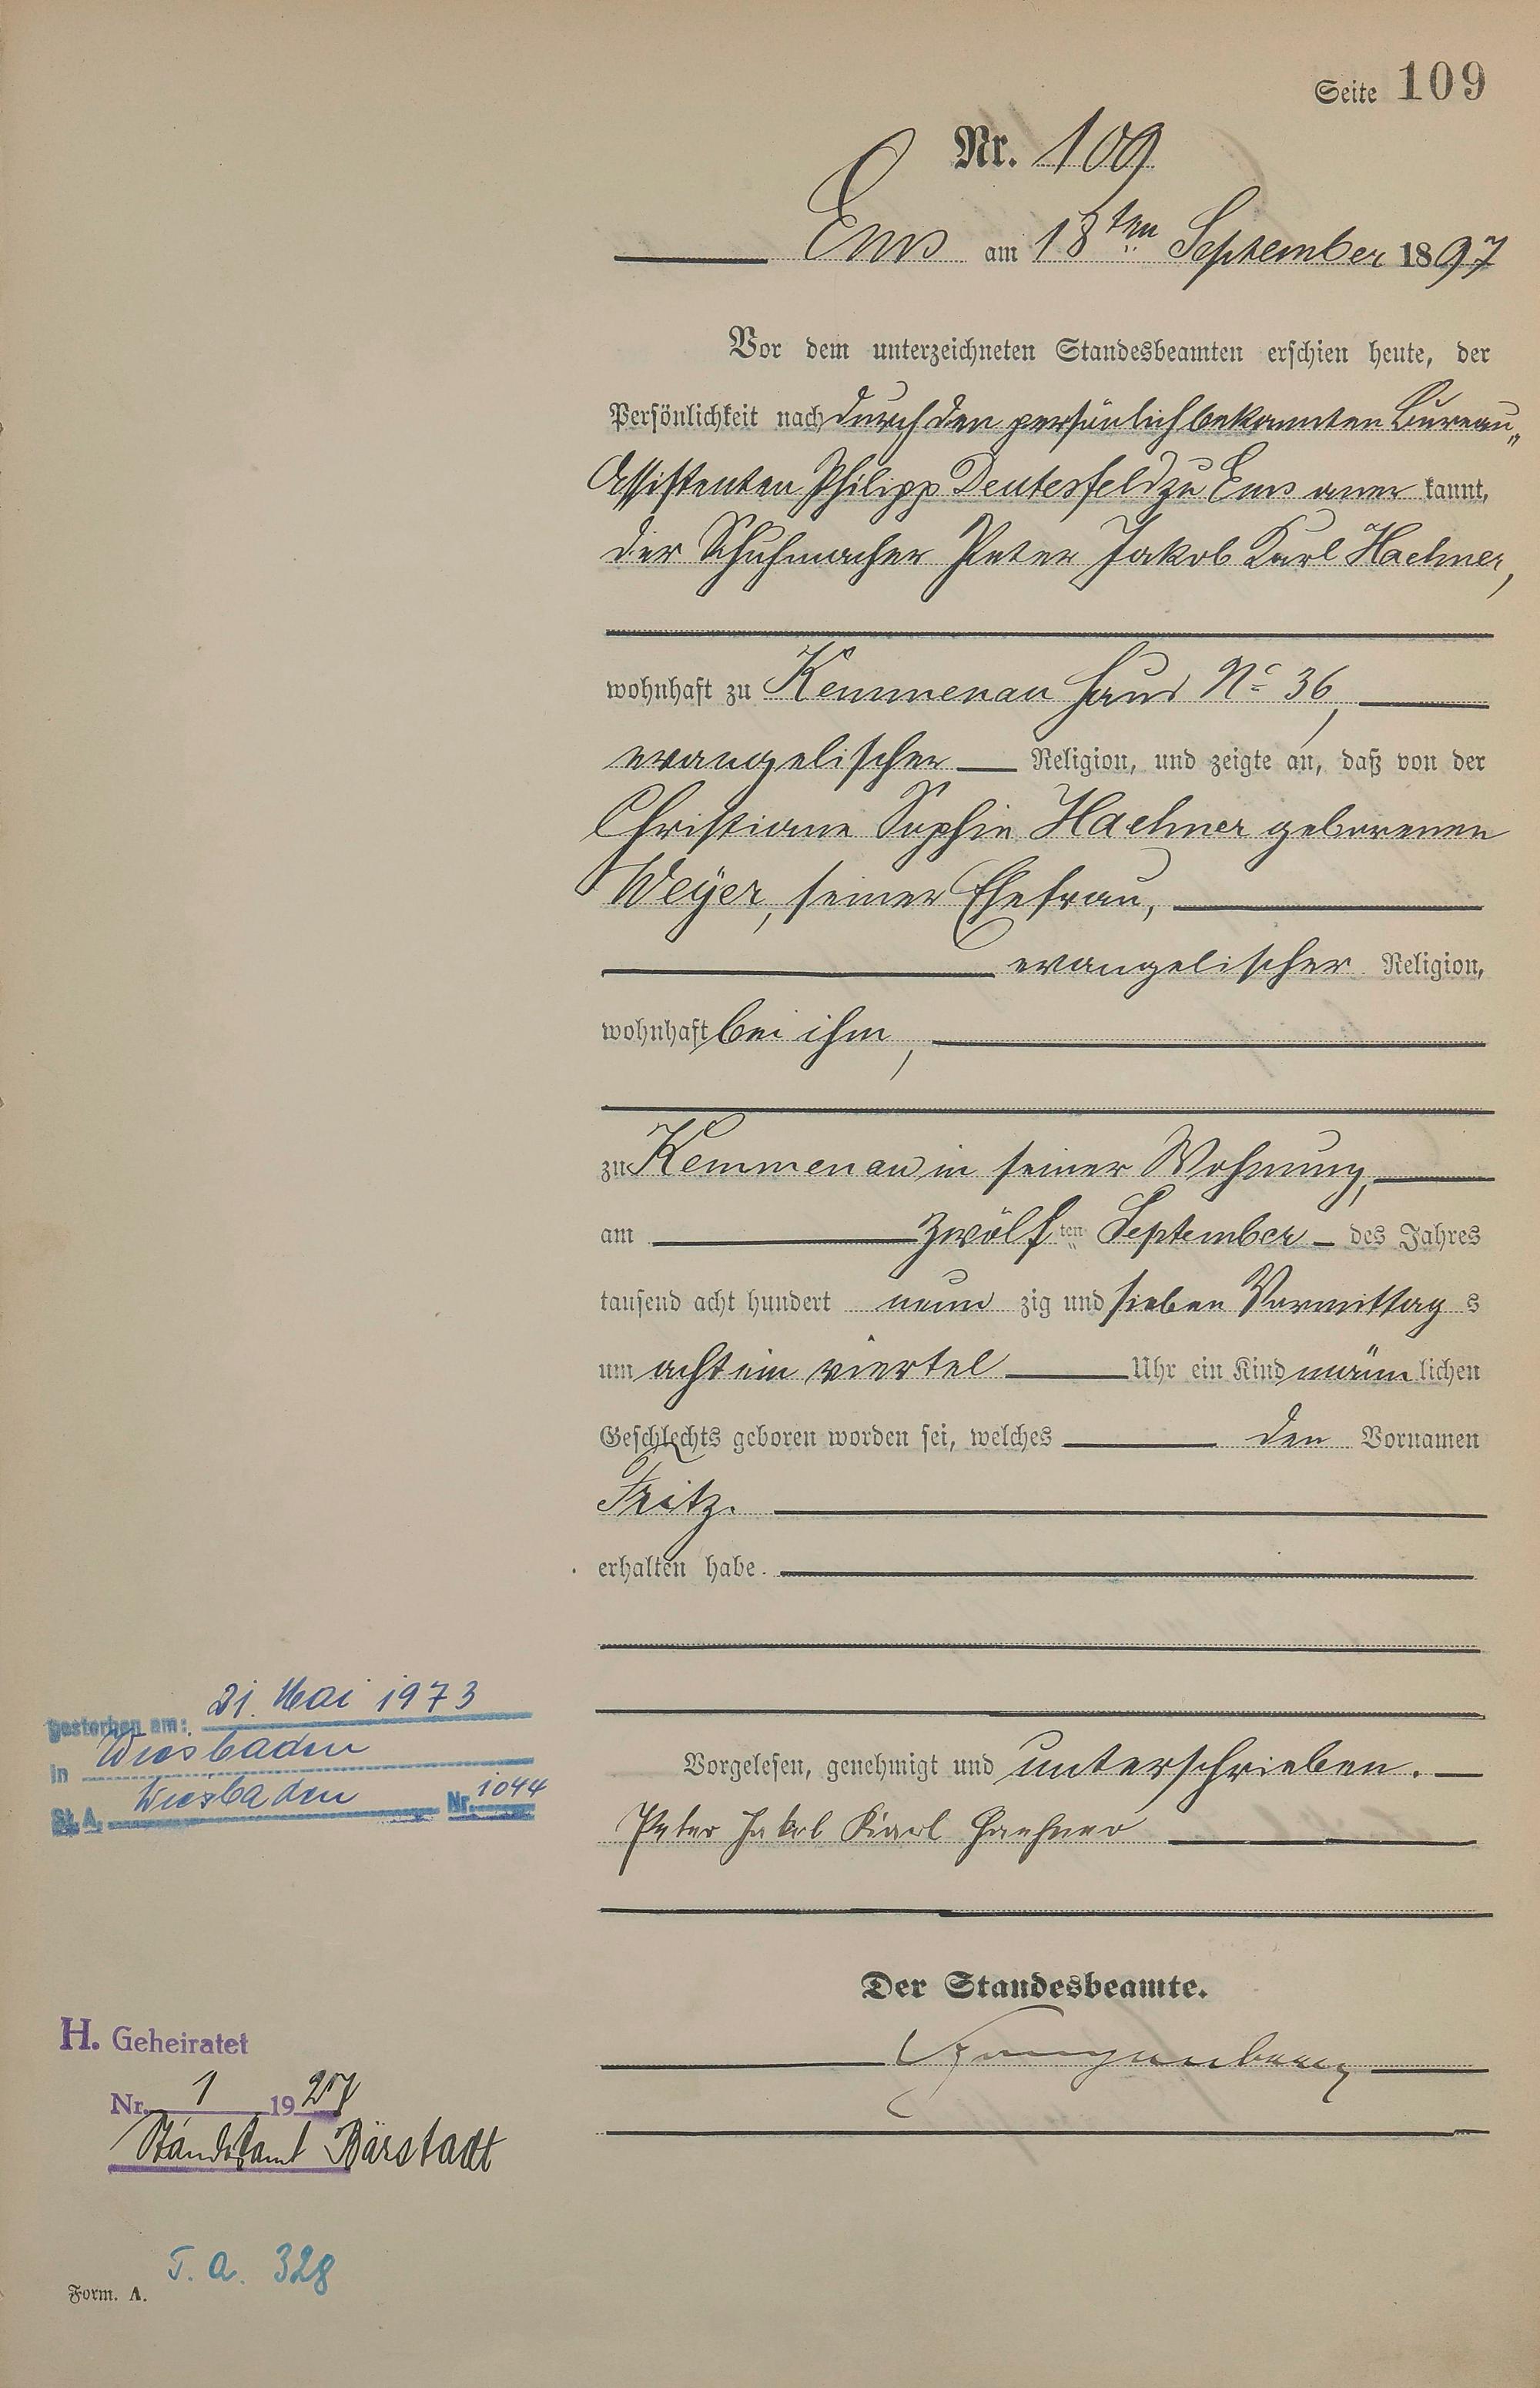 Seite 109
Nr. 109
Ems am 18ten September 1897
Vor dem unterzeichneten Standesbeamten erschien heute, der
Persönlichkeit nach durch den persönlich bekannten Bureau„
Assistenten Philipp Deutesfeld zu Ems aner kannt,
der Schuhmacher Peter Jakob Karl Haehner,
wohnhaft zu Kemmenau Haus No 36,
evangelischer Religion, und zeigte an, daß von der
Christiane Sophie Haehner geborenen
Weÿer, seiner Ehefrau,
evangelischer Religion,
wohnhaft bei ihm,
zu Kemmenau in seiner Wohnung,
am zwölf ten September des Jahres
tausend acht hundert neun zig und sieben Vormittag s
um acht ein viertel Uhr ein Kind männ lichen
Geschlechts geboren worden sei, welches den Vornamen
Fritz.
erhalten habe.
Vorgelesen, genehmigt und unterschrieben.
Peter Jakob Karl Haehner
Der Standesbeamte.
gestorben am: 21. Mai 1973
in Wiesbaden
St. A. Wiesbaden Nr. 1044
H. Geheiratet
Nr. 1 1927
Standesamt Bärstadt
T. A. 328
Form. A.